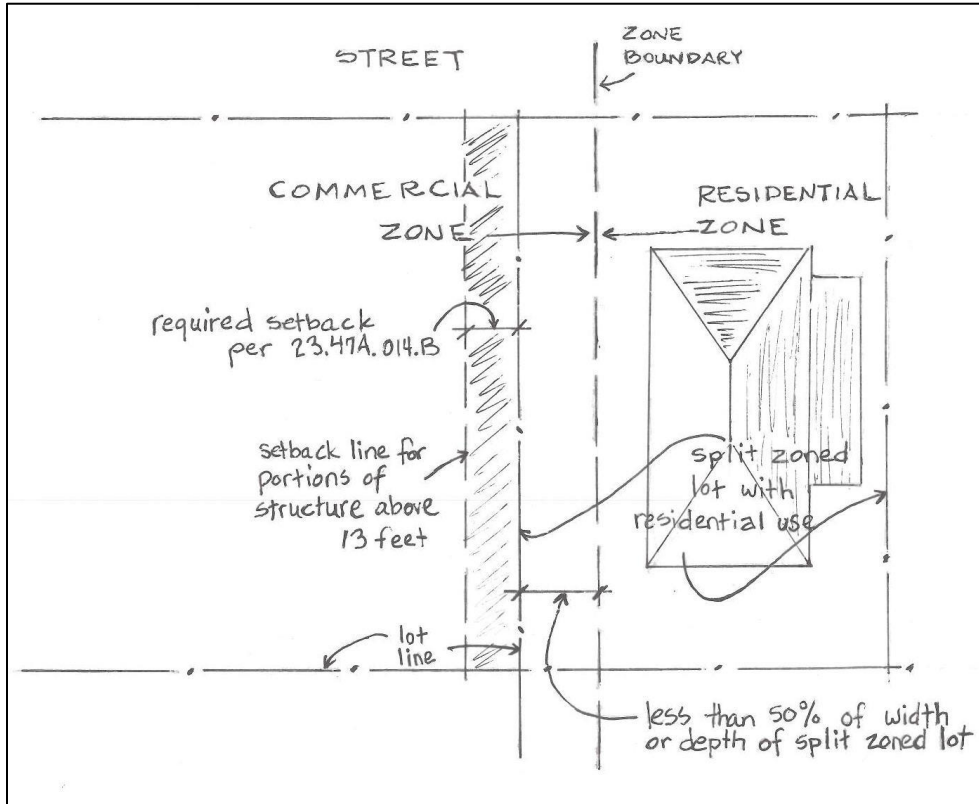 STREET
ZONE
BOUNDARY
COMMERCIAL
ZONE
RESIDENTIAL
ZONE
required setback
per 23.47A.014.B
setback line for
portions of
structure above
13 feet
split zoned
lot with
residential use
lot
line
less than 50% of width
or depth of split zoned lot